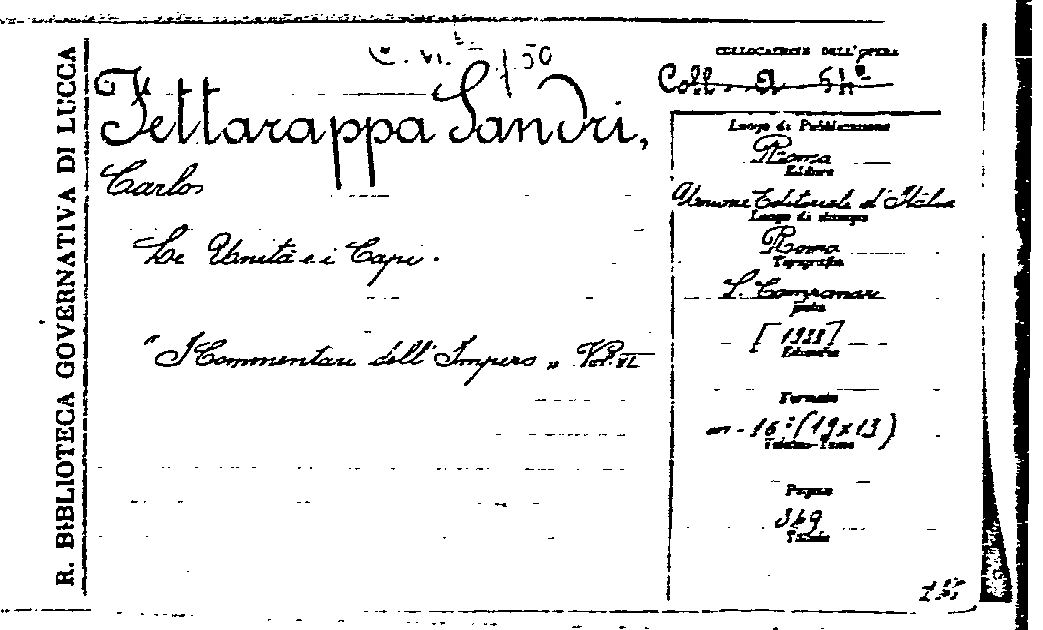 R. BIBLIOTECA GOVERNATIVA DI LUCCA
C. VI. 50
Fettarappa Sandri,
Carlo
Le Unità e i Capi.
"I Commentari dell'Impero" Vol. VI
COLLOCAZIONE DELL'OPERA
Coll. a 54
Luogo di Pubblicazione
Roma
Editore
Unione Editoriale d'Italia
Luogo di stampa
Roma
Tipografia
S. Campanari
[1938]
Edizione
Formato
in-16° (19x13)
Pagine
369
Tavole